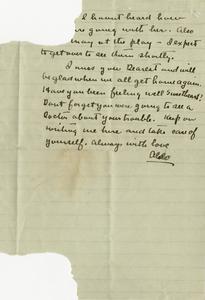 I havent heard how
going with her. Also
at the play - I expect
to get over to see them shortly.
I miss you Dearest and will
be glad when we all get home again.
Have you been feeling well sweetheart?
Dont forget you were going to see a
Doctor about your trouble. Keep on
writing me here and take care of
yourself. Always with love